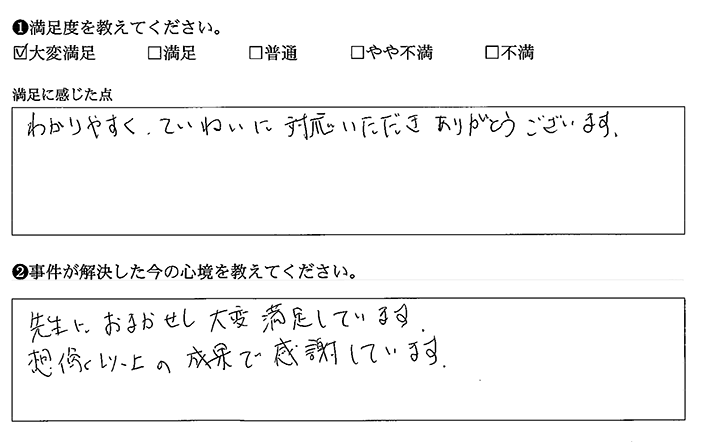 ❶満足度を教えてください。
☑大変満足 □満足 □普通 □やや不満 □不満
満足に感じた点
わかりやすく、ていねいに対応いただきありがとうございます。
❷事件が解決した今の心境を教えてください。
先生におまかせし大変満足しています。
想像以上の成果で感謝しています。